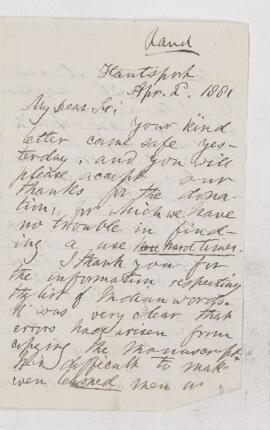 Rand
Hantsport
Apr. 2. 1881
My Dear Sir;
Your kind
letter came safe yes-
terday, and you will
please accept our
thanks for the dona-
tion, for which we have
no trouble in find-
ing a use these hard times.
I thank you for
the information respecting
the list of Indian words.
It was very clear that
errors had arisen from
copying the manuscript.
difficult to make
even learned men as